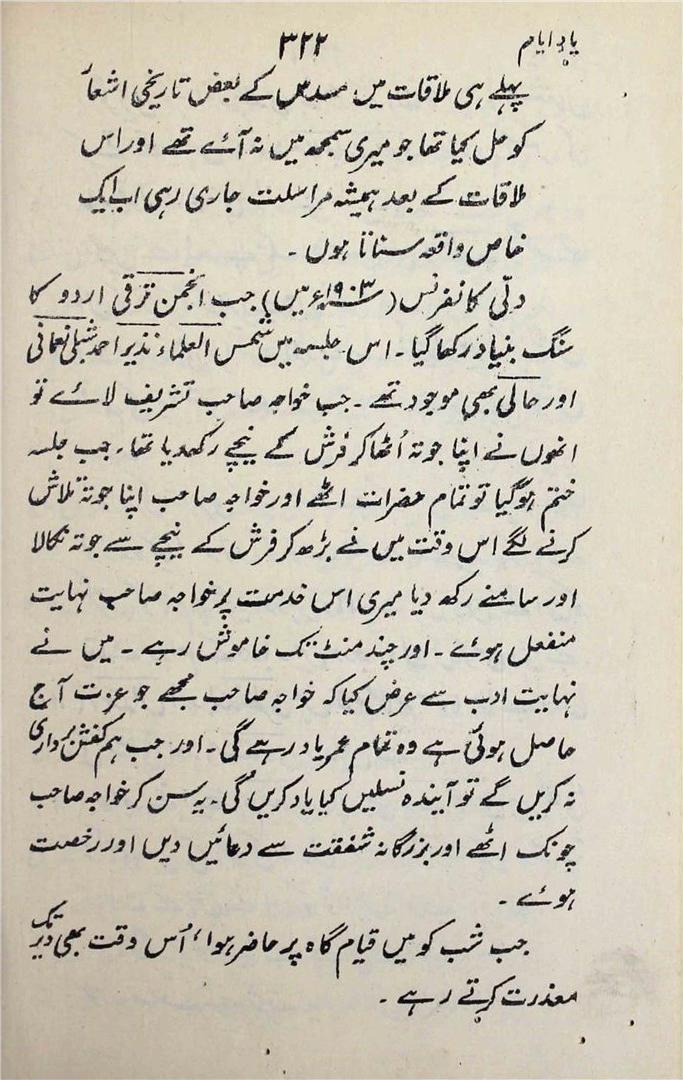 یاد ایام
۳۲۲
پہلے ہی ملاقات میں مسدس کے بعض تاریخی اشعار
کو حل کیا تھا جو میری سمجھ میں نہ آئے تھے اور اس
ملاقات کے بعد ہمیشہ مراسلت جاری رہی اب ایک
خاص واقعہ سناتا ہوں ۔
دلّی کانفرنس (۱۹۰۳ء میں) جب انجمن ترقی اردو کا
سنگ بنیاد رکھا گیا ۔ اس جلسہ میں شمس العلماء نذیر احمد شبلی نعمانی
اور حالی بھی موجود تھے ۔ جب خواجہ صاحب تشریف لائے تو
انھوں نے اپنا جوتہ اُٹھا کر فرش کے نیچے رکھدیا تھا ۔ جب جلسہ
ختم ہوگیا تو تمام حضرات اٹھے اور خواجہ صاحب اپنا جوتہ تلاش
کرنے لگے اس وقت میں نے بڑھ کر فرش کے نیچے سے جوتہ نکالا
اور سامنے رکھ دیا میری اس خدمت پر خواجہ صاحب نہایت
منفعل ہوئے ۔ اور چند منٹ تک خاموش رہے ۔ میں نے
نہایت ادب سے عرض کیا کہ خواجہ صاحب مجھے جو عزت آج
حاصل ہوئی ہے وہ تمام عمر یاد رہے گی ۔ اور جب ہم کفش برداری
نہ کریں گے تو آیندہ نسلیں کیا یاد کریں گی ۔ یہ سن کر خواجہ صاحب
چونک اٹھے اور بزرگانہ شفقت سے دعائیں دیں اور رخصت
ہوئے ۔
جب شب کو میں قیام گاہ پر حاضر ہوا ، اُس وقت بھی دیر تک
معذرت کرتے رہے ۔